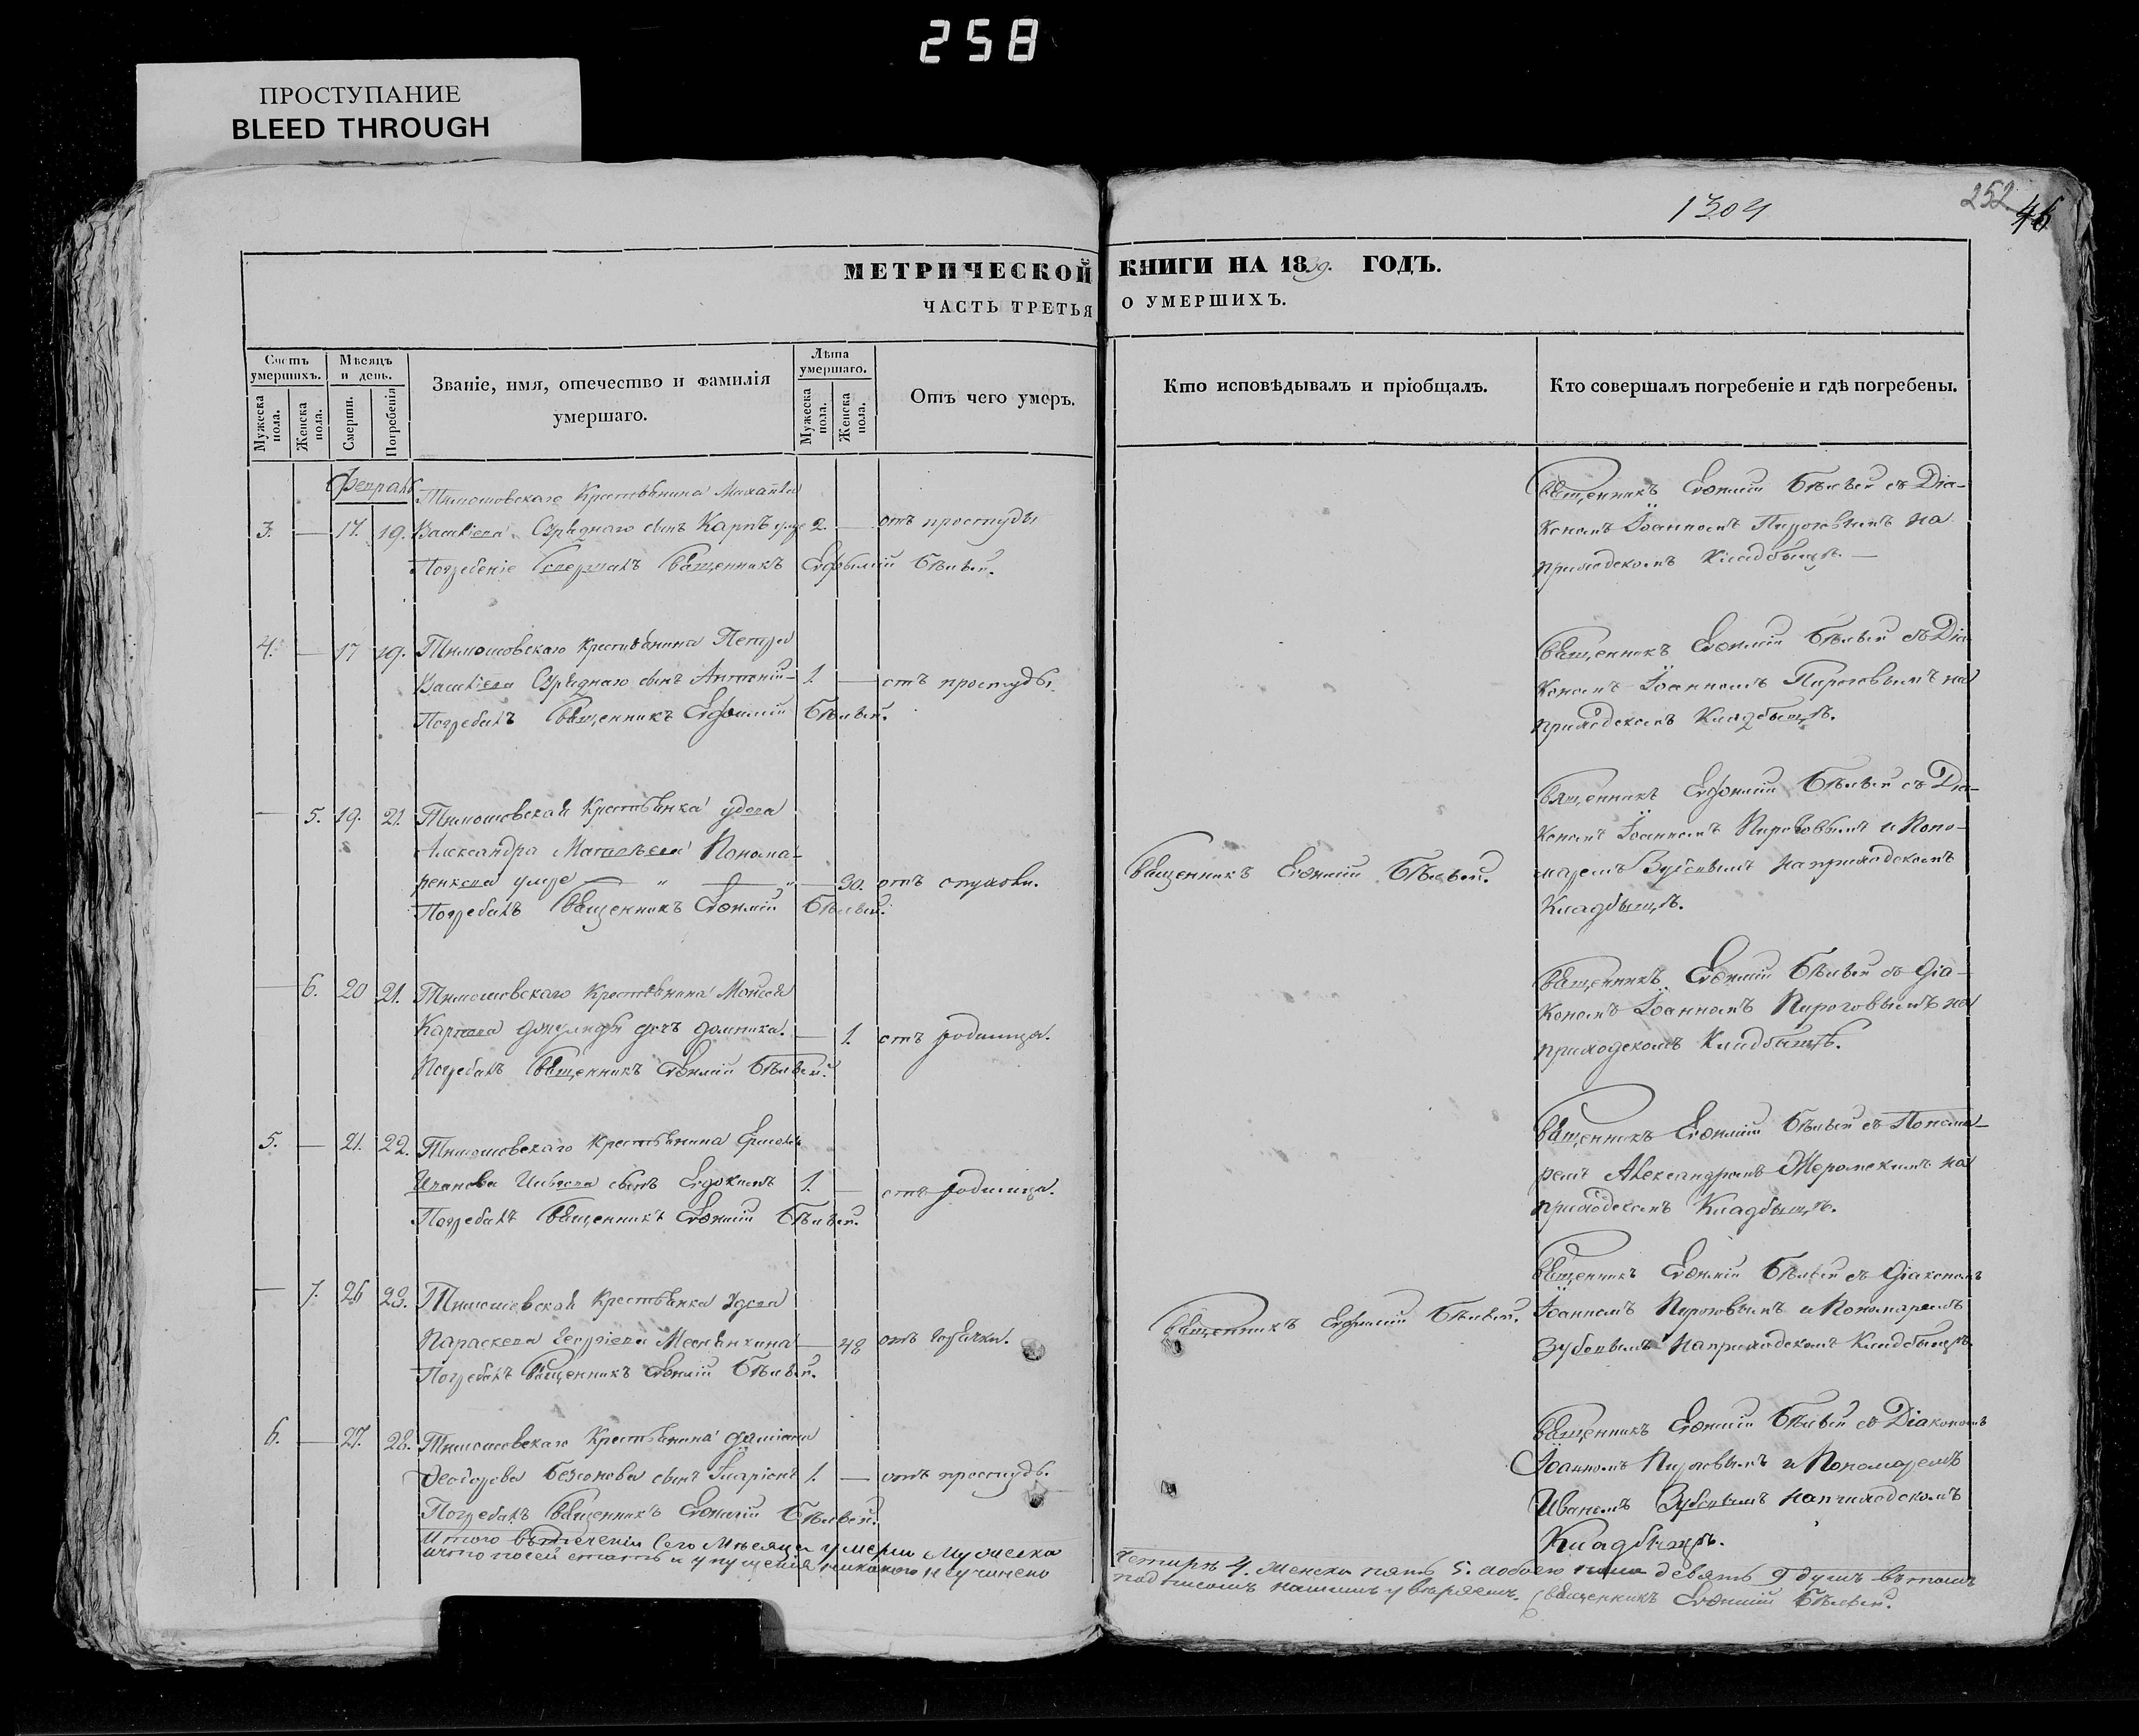 258
ПРОСТУПАНИЕ
BLEED THROUGH
1304
252
46
МЕТРИЧЕСКОЙ КНИГИ НА 1839. ГОДЪ.
ЧАСТЬ ТРЕТЬЯ О УМЕРШИХЪ.
Счетъ умершихъ.
Мужеска пола.
Женска пола.
Мѣсяцъ и день.
Смерти.
Погребенія
Званіе, имя, отечество и фамилія
умершаго.
Лѣта умершаго.
Мужеска пола.
Женска пола.
Отъ чего умеръ.
Кто исповѣдывалъ и пріобщалъ.
Кто совершалъ погребеніе и гдѣ погребены.
Февраль
Тимошовскаго Крестьянина Михаила
3. — 17. 19. Василіева сынъ Карпъ умре 2. — отъ простуды
Погребеніе Совершалъ Священникъ Евфимій Бѣлый.
Священникъ Евфимій Бѣлый съ Діа-
кономъ Іоанномъ Пироговымъ на
приходскомъ Кладбищѣ. —
4. — 17 19. Тимошовскаго крестьянина Петра
Василіева сынъ Антоній — 1. — отъ простуды.
Погребалъ Священникъ Евфимій Бѣлый.
Священникъ Евфимій Бѣлый съ Діа-
кономъ Іоанномъ Пироговымъ на
приходскомъ Кладбищѣ.
— 5. 19. 21. Тимошовская Крестьянка удова
Александра Матвѣева Понома-
ренкова умре — 30. отъ опухоли.
Погребалъ Священникъ Евфимій Бѣлый.
Священникъ Евфимій Бѣлый.
Священникъ Евфимій Бѣлый съ Діа-
кономъ Іоанномъ Пироговымъ и Поно-
маремъ Зубовымъ на приходскомъ
Кладбищѣ.
— 6. 20 21. Тимошовскаго Крестьянина Моисея
Карпова дочь Домника. — 1. отъ родимца.
Погребалъ Священникъ Евфимій Бѣлый.
Священникъ Евфимій Бѣлый съ Діа-
кономъ Іоанномъ Пироговымъ на
приходскомъ Кладбищѣ.
5. — 21. 22. Тимошовскаго Крестьянина
Иванова сынъ Евдокимъ 1. — отъ родимца.
Погребалъ Священникъ Евфимій Бѣлый.
Священникъ Евфимій Бѣлый съ Понома-
ремъ Александромъ на
приходскомъ Кладбищѣ.
— 7. 26 23. Тимошовская Крестьянка Удова
Параскева Георгіева — 48 отъ горячки.
Погребалъ Священникъ Евфимій Бѣлый.
Священникъ Евфимій Бѣлый.
Священникъ Евфимій Бѣлый съ Діакономъ
Іоанномъ Пироговымъ и Пономаремъ
Зубовымъ на приходскомъ Кладбищѣ.
6. — 27. 28. Тимошовскаго Крестьянина Даміана
Феодорова Безсонова сынъ Иларіонъ 1. — отъ простуды.
Погребалъ Священникъ Евфимій Бѣлый.
Священникъ Евфимій Бѣлый съ Діакономъ
Іоанномъ Пироговымъ и Пономаремъ
Иваномъ Зубовымъ на приходскомъ
Кладбищѣ.
Итого въ теченіи Сего Мѣсяца умерло Мужеска четыре 4. Женска пять 5. обоего пола девять 9 душъ въ томъ
что по сей статьи упущенія никакого неучинено подписомъ нашимъ увѣряемъ. Священникъ Евфимій Бѣлый.